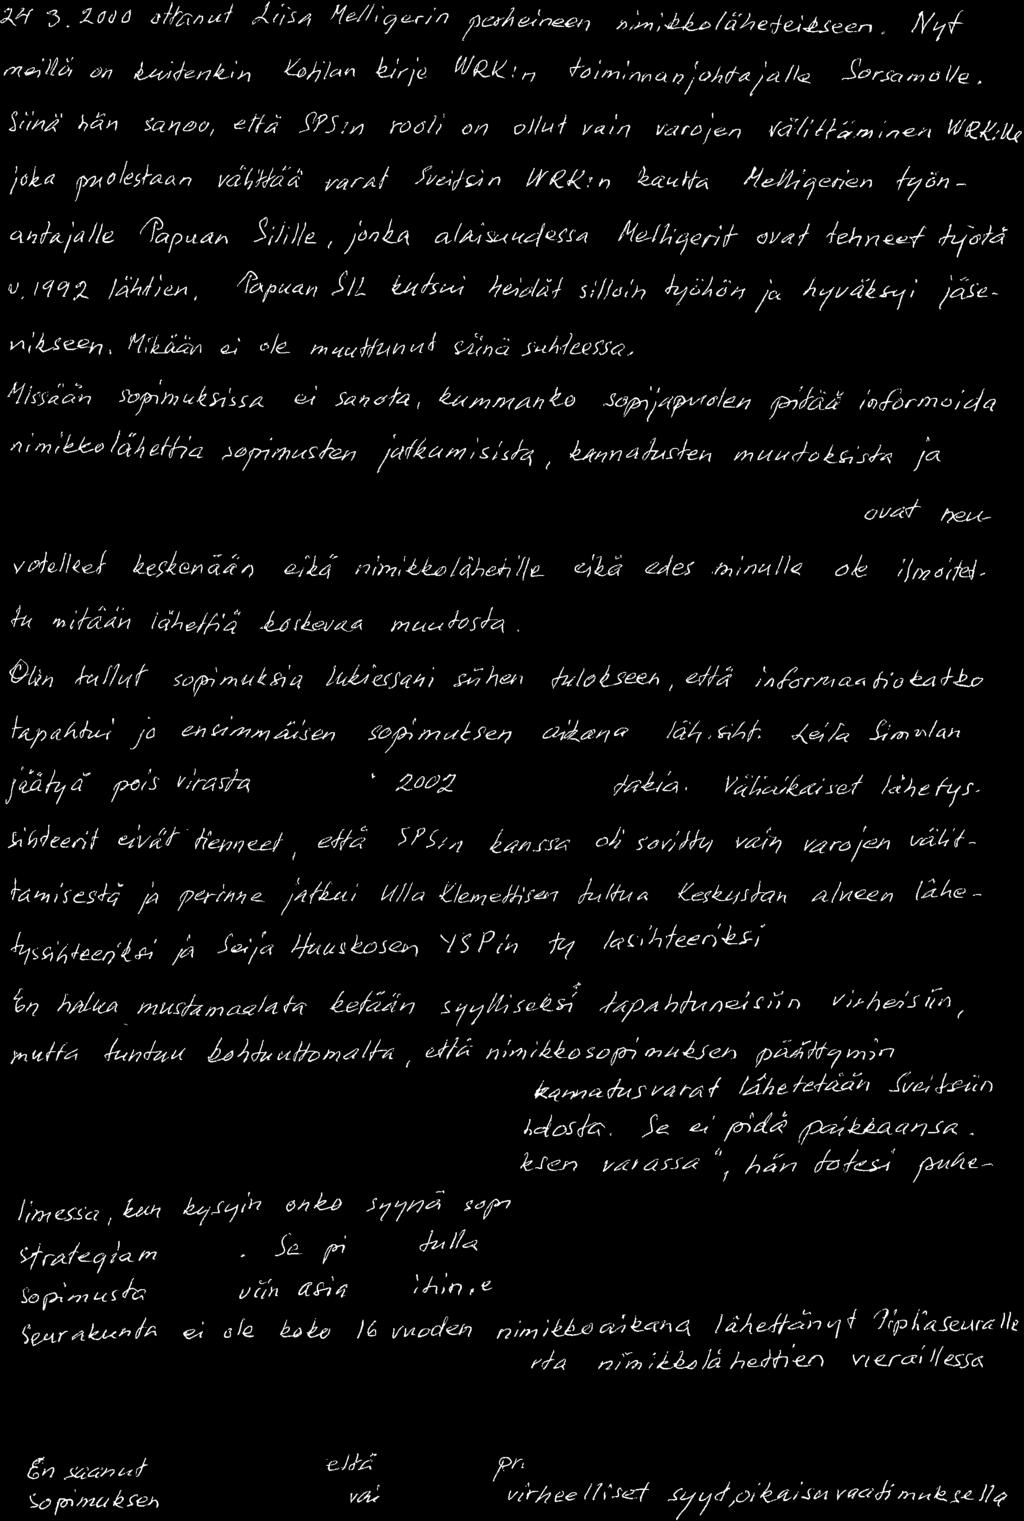 24 3. 2000 ottanut Liisa Melligerin perheineen nimikkoläheteikseen. Nyt
meillä on kuitenkin Kohlan kirje WRK:n toiminnanjohtajalle Sorsamolle.
Siinä hän sanoo, että SPS:n rooli on ollut vain varojen välittäminen WRK:lle
joka puolestaan välittää varat Sveitsin WRK:n kautta Melligerien työn-
antajalle Papuan Silille, jonka alaisuudessa Melligerit ovat tehneet työtä
v. 1992 lähtien. Papuan SIL kutsui heidät silloin työhön ja hyväksyi jäse-
nikseen. Mikään ei ole muuttunut siinä suhteessa.
Missään sopimuksissa ei sanota, kummanko sopijapuolen pitää informoida
nimikkolähettiä sopimusten jatkumisista, kannatusten muutoksista ja
ovat neu-
votelleet keskenään eikä nimikkolähetille eikä edes minulle ole ilmoitet-
tu mitään lähettiä koskevaa muutosta.
Olin tullut sopimuksia lukiessani siihen tulokseen, että informaatiokatko
tapahtui jo ensimmäisen sopimuksen aikana läh.siht. Leila Simolan
jäätyä pois virasta 2002 takia. Väliaikaiset lähetys-
sihteerit eivät tienneet, että SPS:n kanssa oli sovittu vain varojen välit-
tämisestä ja perinne jatkui Ulla Klemettisen tultua Keskustan alueen lähe-
tyssihteeriksi ja Seija Huuskosen YSP:n ty lasihteeriksi
En halua mustamaalata ketään syylliseksi tapahtuneisiin virheisiin,
mutta tuntuu kohtuuttomalta, että nimikkosopimuksen päättymin
kannatusvarat lähetetään Sveitsiin
hdosta. Se ei pidä paikkaansa.
ksen varassa", hän totesi puhe-
limessa, kun kysyin onko syynä sopi
strategiam . Se pi tulla
sopimusta viin asia ihin,e
Seurakunta ei ole koko 16 vuoden nimikkoaikana lähettänyt Pipliaseuralle
rta nimikkolähettien vieraillessa
En saanut että pr
sopimuksen vai virheelliset syyt,oikaisuvaatimuksella